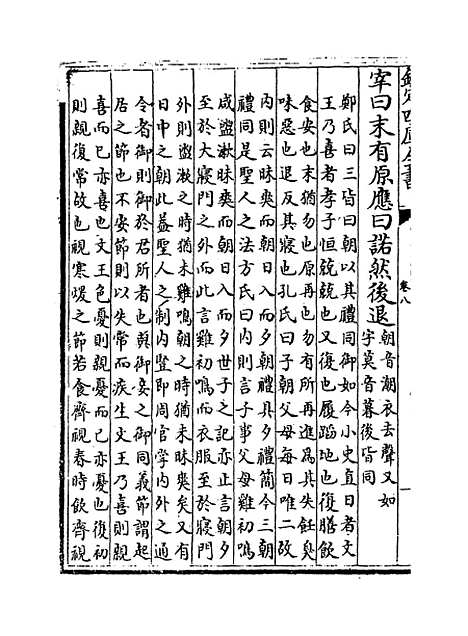 欽定四庫全書
卷八
宰曰末有原應曰諾然後退朝音潮衣去聲又如
字莫音暮後皆同
鄭氏曰三皆曰朝以其禮同御如今小史直日者文
王乃喜者孝子恒兢兢也又復也履蹈地也復膳飲
食安也末猶勿也原再也勿有所再進為其失飪臭
味惡也退反其寢也孔氏曰子朝父母每日唯二故
内則云昧爽而朝日入而夕朝禮具夕禮簡今三朝
禮同是聖人之法方氏曰内則言子事父母雞初鳴
咸盥漱昧爽而朝日入而夕世子之記亦止言朝夕
至於大寢門之外而此言雞初鳴而衣服至於寢門
外則盥漱之時猶未雞鳴朝之時猶未昧爽矣又有
日中之朝此益聖人之制内豎即周官掌内外之通
令者御則御於君所者也與御妾之御同義節謂起
居之節也不安節則以失常而疾生文王乃喜則親
喜而已亦喜也文王色憂則親憂而已亦憂也復初
則親復常故也視寒煖之節若食齊視春時飲齊視